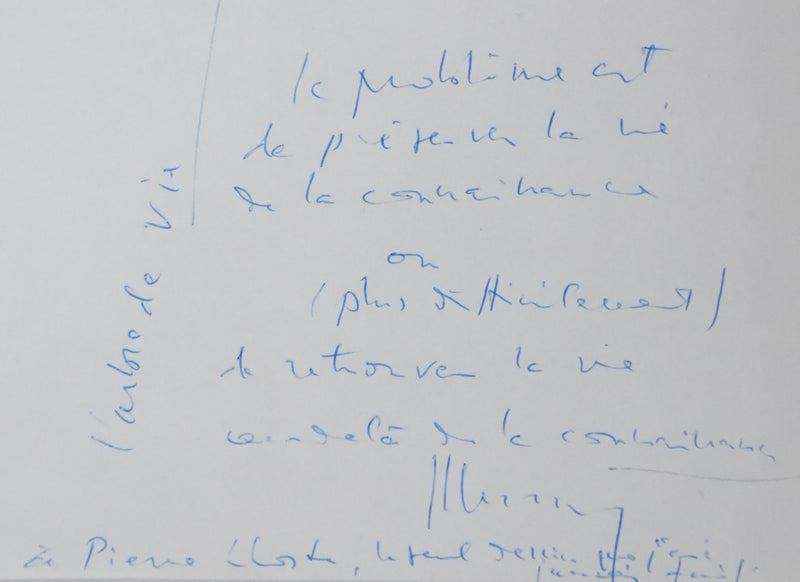 le problème est
de préserver la vie
de la connaissance
ou
(plus difficilement)
de retrouver la vie
au-delà de la connaissance
l'arbre de vie
à Pierre, le seul dessin que j'ai
jamais